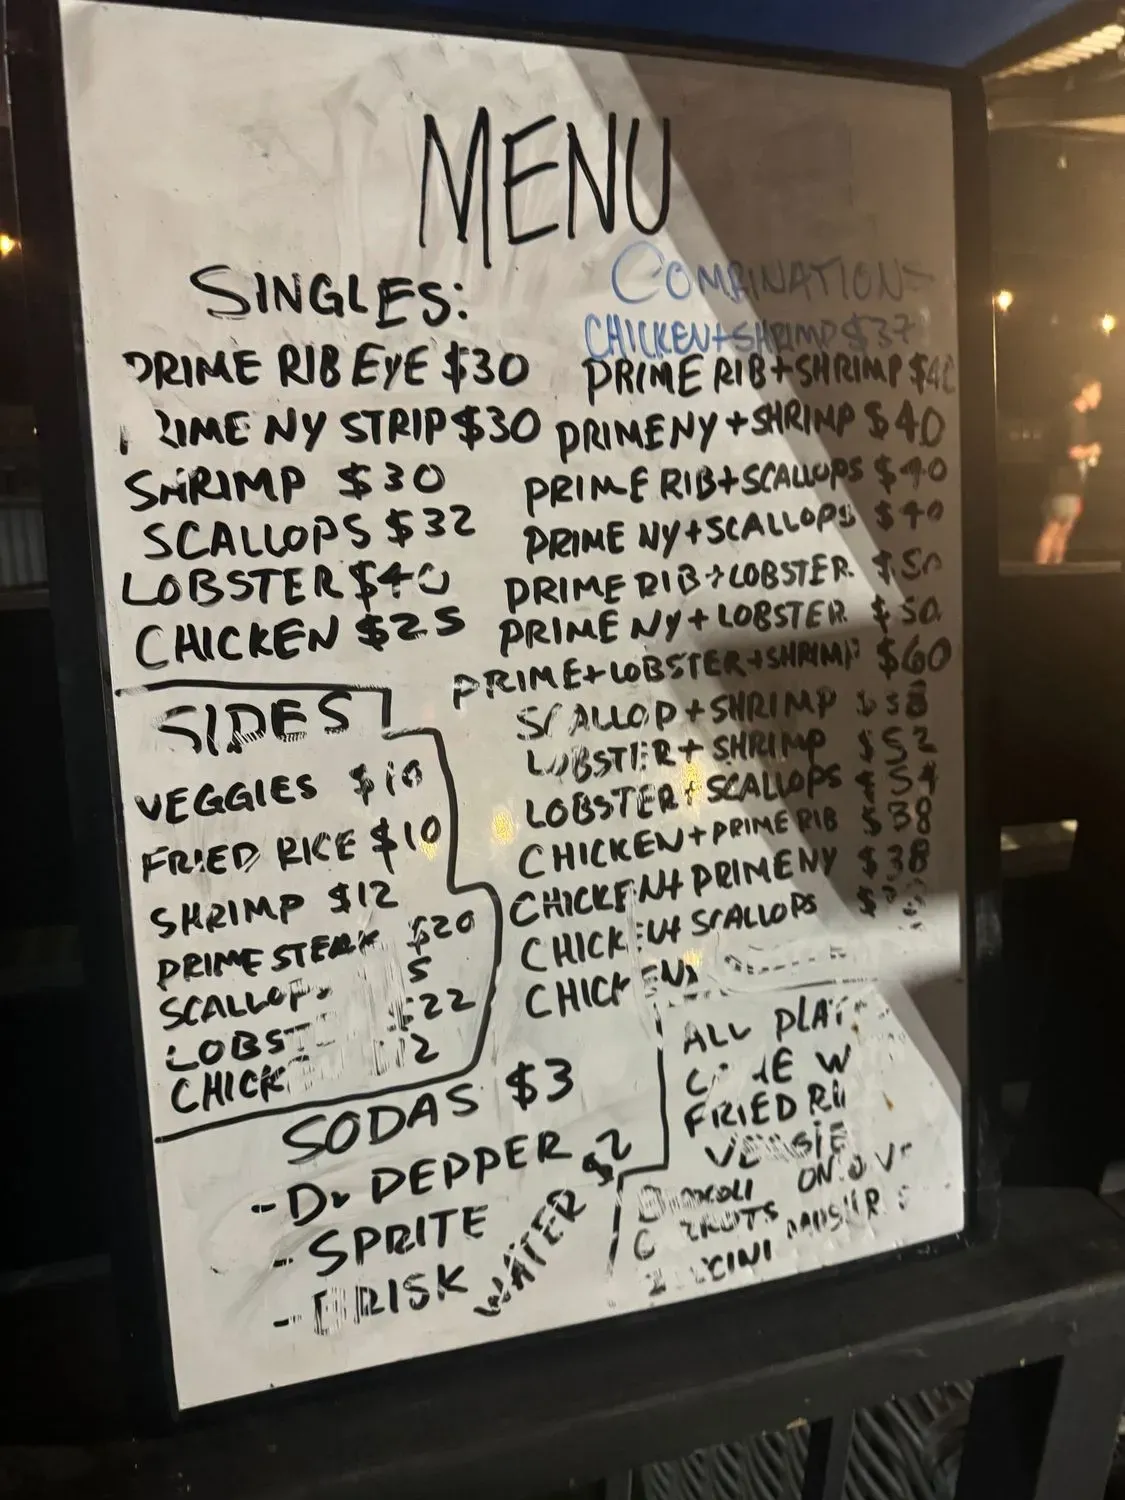 MENU
SINGLES:
PRIME RIB EYE $30
PRIME NY STRIP $30
SHRIMP $30
SCALLOPS $32
LOBSTER $40
CHICKEN $25
SIDES
VEGGIES $10
FRIED RICE $10
SHRIMP $12
PRIME STEAK $20
SCALLOPS 5
LOBST $22
CHICK 12
SODAS $3
- Dr PEPPER
- SPRITE
- BRISK
WATER $2
COMBINATIONS
CHICKEN + SHRIMP $37
PRIME RIB + SHRIMP $40
PRIME NY + SHRIMP $40
PRIME RIB + SCALLOPS $40
PRIME NY + SCALLOPS $40
PRIME RIB + LOBSTER $50
PRIME NY + LOBSTER $50
PRIME + LOBSTER + SHRIMP $60
SCALLOP + SHRIMP $38
LOBSTER + SHRIMP $52
LOBSTER + SCALLOPS $54
CHICKEN + PRIME RIB $38
CHICKEN + PRIME NY $38
CHICKEN + SCALLOPS
CHICKEN
ALL PLAT
COME W
FRIED RI
VEGGIE
BROCOLI ONIO
CARROTS MUSHR
ZUCCINI